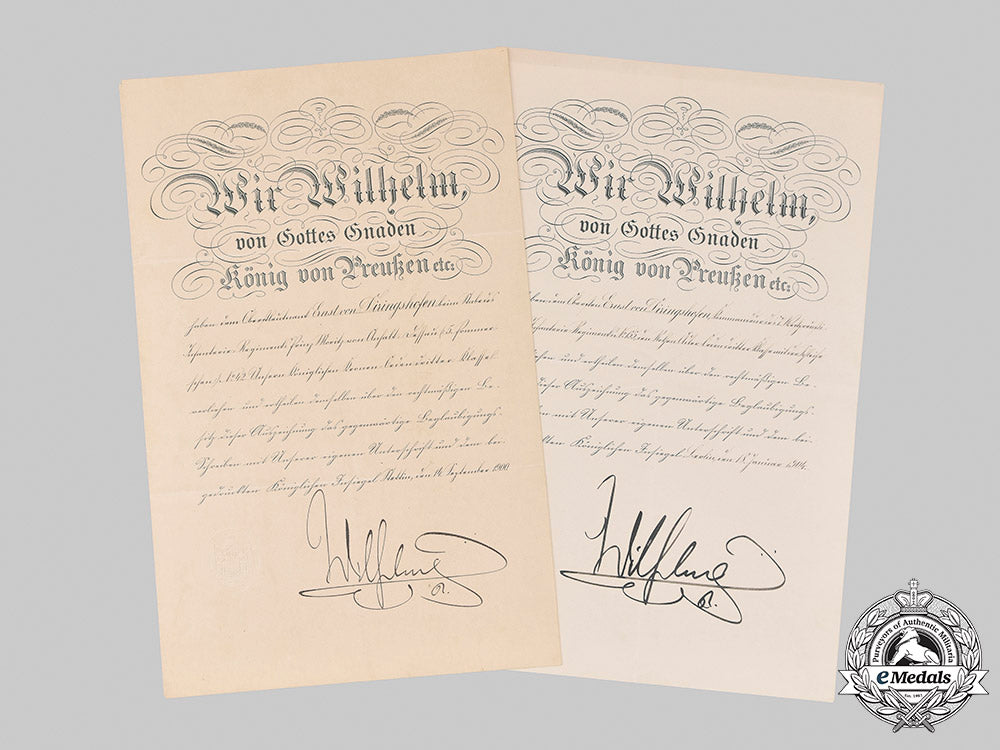 Wir Wilhelm,
von Gottes Gnaden
König von Preußen etc:
haben dem Oberstlieutenant Ernst von Diringshofen beim Stabe des
Infanterie-Regiments Prinz Moritz von Anhalt-Dessau (5. Pommer-
schen) No 42 Unsern Königlichen Kronen-Orden dritter Klasse
verliehen und ertheilen demselben über den rechtmäßigen Be-
sitz dieser Auszeichnung das gegenwärtige Beglaubigungs-
Schreiben mit Unserer eigenen Unterschrift und dem bei-
gedruckten Königlichen Insiegel. Stettin, den 14. September 1900
Wilhelm
R.
Wir Wilhelm,
von Gottes Gnaden
König von Preußen etc:
dem Obersten Ernst von Diringshofen, Kommandeur des
Infanterie-Regiments No den Rothen Adler-Orden dritter Klasse mit der Schleife
und ertheilen demselben über den rechtmäßigen Be-
dieser Auszeichnung das gegenwärtige Beglaubigungs-
mit Unserer eigenen Unterschrift und dem bei-
Königlichen Insiegel. Berlin, den 18. Januar 1904.
Wilhelm
R.
Purveyors of Authentic Militaria
eMedals